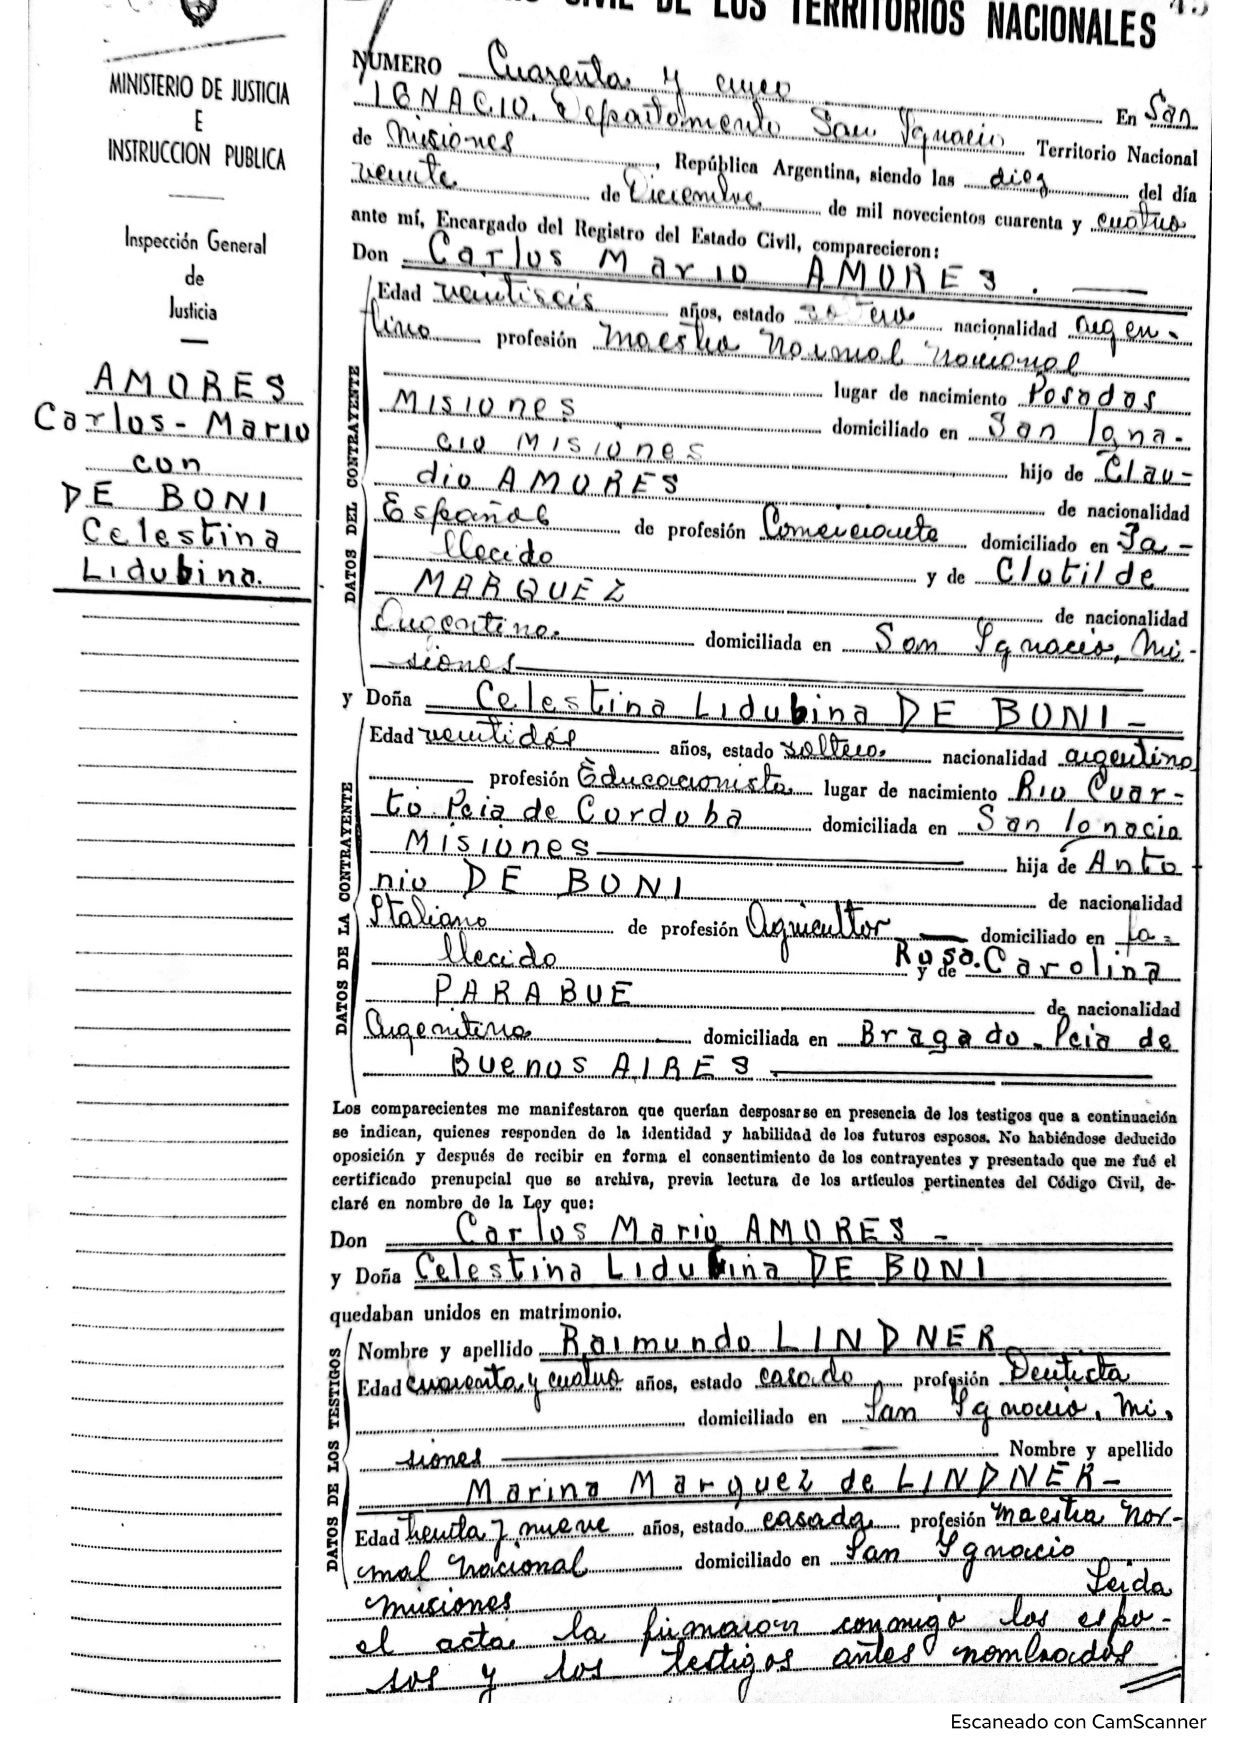 CIVIL DE LOS TERRITORIOS NACIONALES
MINISTERIO DE JUSTICIA
E
INSTRUCCION PUBLICA
Inspección General
de
Justicia
AMORES
Carlos - Mario
con
DE BONI
Celestina
Lidubina.
NUMERO Cuarenta y cinco En San
IGNACIO, Departamento San Ignacio Territorio Nacional
de Misiones, República Argentina, siendo las diez del día
veinte de Diciembre de mil novecientos cuarenta y cuatro
ante mí, Encargado del Registro del Estado Civil, comparecieron:
Don Carlos Mario AMORES.
DATOS DEL CONTRAYENTE
Edad veintiseis años, estado soltero nacionalidad argen-
tino profesión maestro normal nacional
lugar de nacimiento Posadas
Misiones domiciliado en San Igna-
cio Misiones hijo de Clau-
dio AMORES de nacionalidad
Español de profesión Comerciante domiciliado en Fa-
llecido y de Clotilde
MARQUEZ de nacionalidad
Argentina. domiciliada en San Ignacio, Mi-
siones
y Doña Celestina Lidubina DE BONI -
DATOS DE LA CONTRAYENTE
Edad veintidós años, estado soltera nacionalidad argentina
profesión Educacionista lugar de nacimiento Rio Cuar-
to Pcia de Cordoba domiciliada en San Ignacio
Misiones hija de Anto
nio DE BONI de nacionalidad
Italiano de profesión Agricultor domiciliado en fa-
llecido y de Rosa. Carolina
PARABUE de nacionalidad
Argentina domiciliada en Bragado. Pcia de
Buenos AIRES
Los comparecientes me manifestaron que querían desposarse en presencia de los testigos que a continuación
se indican, quienes responden de la identidad y habilidad de los futuros esposos. No habiéndose deducido
oposición y después de recibir en forma el consentimiento de los contrayentes y presentado que me fué el
certificado prenupcial que se archiva, previa lectura de los artículos pertinentes del Código Civil, de-
claré en nombre de la Ley que:
Don Carlos Mario AMORES -
y Doña Celestina Lidubina DE BONI
quedaban unidos en matrimonio.
DATOS DE LOS TESTIGOS
Nombre y apellido Raimundo LINDNER
Edad cuarenta y cuatro años, estado casado profesión Dentista
domiciliado en San Ignacio, Mi.
siones Nombre y apellido
Marina Marquez de LINDNER-
Edad treinta y nueve años, estado casada profesión maestra nor-
mal nacional domiciliado en San Ignacio
misiones Leida
el acta la firmaron conmigo los espo-
sos y los testigos antes nombrados
Escaneado con CamScanner